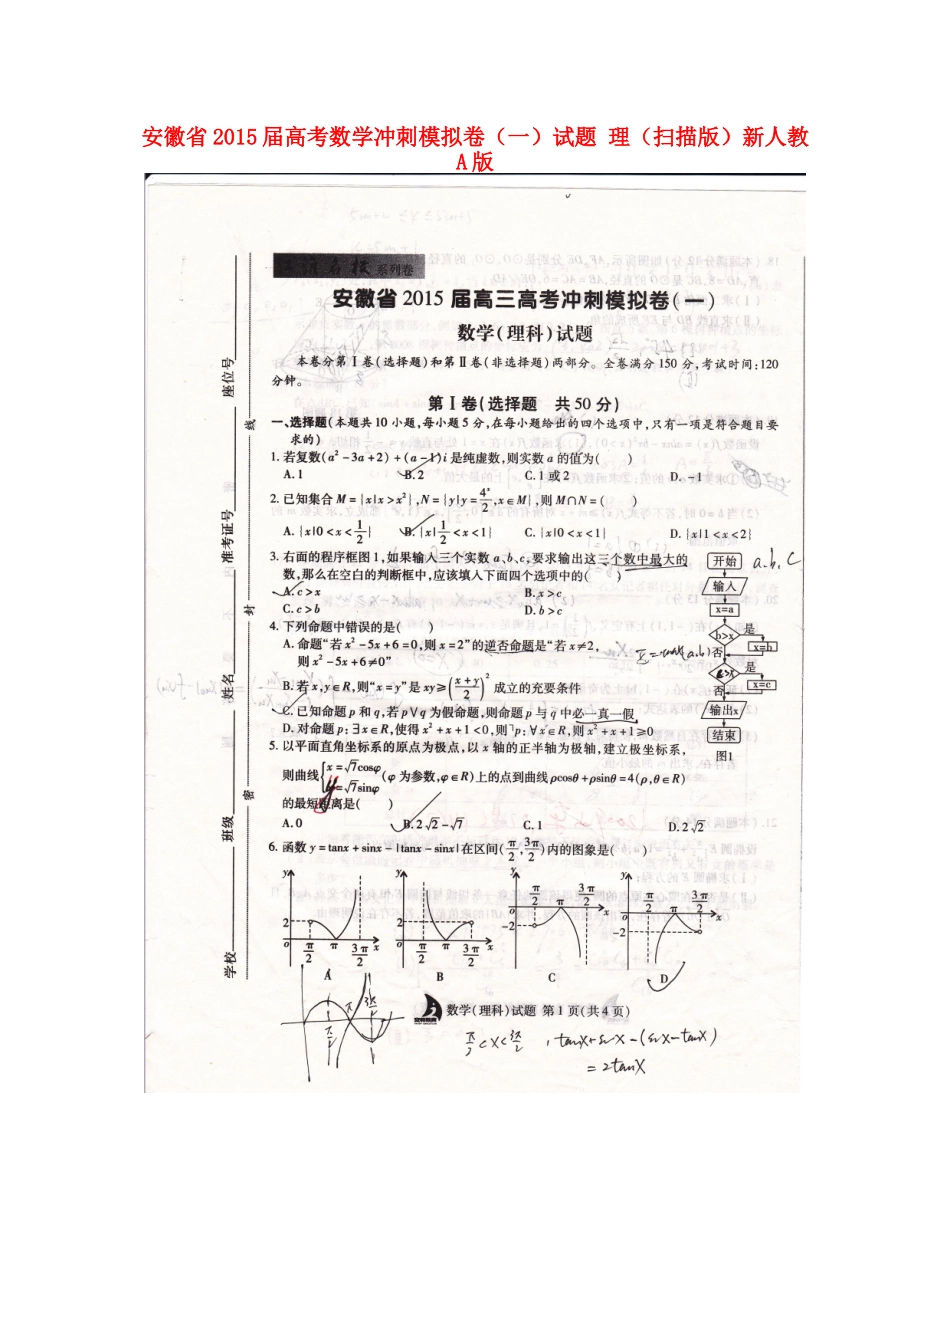 安徽省 2015 届高考数学冲刺模拟卷（一）试题 理（扫描版）新人教
A 版
系列卷
安徽省 2015 届高三高考冲刺模拟卷(一)
数学(理科)试题
本卷分第Ⅰ卷(选择题)和第Ⅱ卷(非选择题)两部分。全卷满分 150 分,考试时间:120
分钟。
第Ⅰ卷(选择题 共 50 分)
一、选择题(本题共 10 小题,每小题 5 分,在每小题给出的四个选项中,只有一项是符合题目要
求的)
1. 若复数(a²-3a+2)+(a-1)i 是纯虚数,则实数 a 的值为( )
A. 1 B. 2 C. 1 或 2 D. -1
2. 已知集合 M={x|x>x²},N={y|y=4ˣ/2,x∈M},则 M∩N=( )
A. {x|0<x<1/2} B. {x|1/2<x<1} C. {x|0<x<1} D. {x|1<x<2}
3. 右面的程序框图 1,如果输入三个实数 a、b、c,要求输出这三个数中最大的
数,那么在空白的判断框中,应该填入下面四个选项中的( )
A. c>x B. x>c
C. c>b D. b>c
4. 下列命题中错误的是( )
A. 命题“若 x²-5x+6=0,则 x=2”的逆否命题是“若 x≠2,
则 x²-5x+6≠0”
B. 若 x,y∈R,则“x=y”是 xy≥((x+y)/2)² 成立的充要条件
C. 已知命题 p 和 q,若 p∨q 为假命题,则命题 p 与 q 中必一真一假
D. 对命题 p:∃x∈R,使得 x²+x+1<0,则¬p:∀x∈R,则 x²+x+1≥0
5. 以平面直角坐标系的原点为极点,以 x 轴的正半轴为极轴,建立极坐标系,
则曲线{x=√7cosφ
y=√7sinφ (φ 为参数,φ∈R)上的点到曲线 ρcosθ+ρsinθ=4(ρ,θ∈R)
的最短距离是( )
A. 0 B. 2√2-√7 C. 1 D. 2√2
6. 函数 y=tanx+sinx-|tanx-sinx|在区间(π/2,3π/2)内的图象是( )
开始
a.b, C
输入
x=a
b>x
是
x=b
否
c>x
是
x=c
否
输出x
结束
图1
y
2
o
π/2
π
3π/2
x
A
y
2
o
π/2
π
3π/2
x
B
y
o
-2
π/2
π
3π/2
x
C
y
o
-2
π/2
π
3π/2
x
D
数学(理科)试题 第 1 页(共 4 页)
π/2<x<3π/2 , tanx+sinx-(sinx-tanx)
=2tanx
座位号
准考证号
姓名
班级
学校
线
封
密